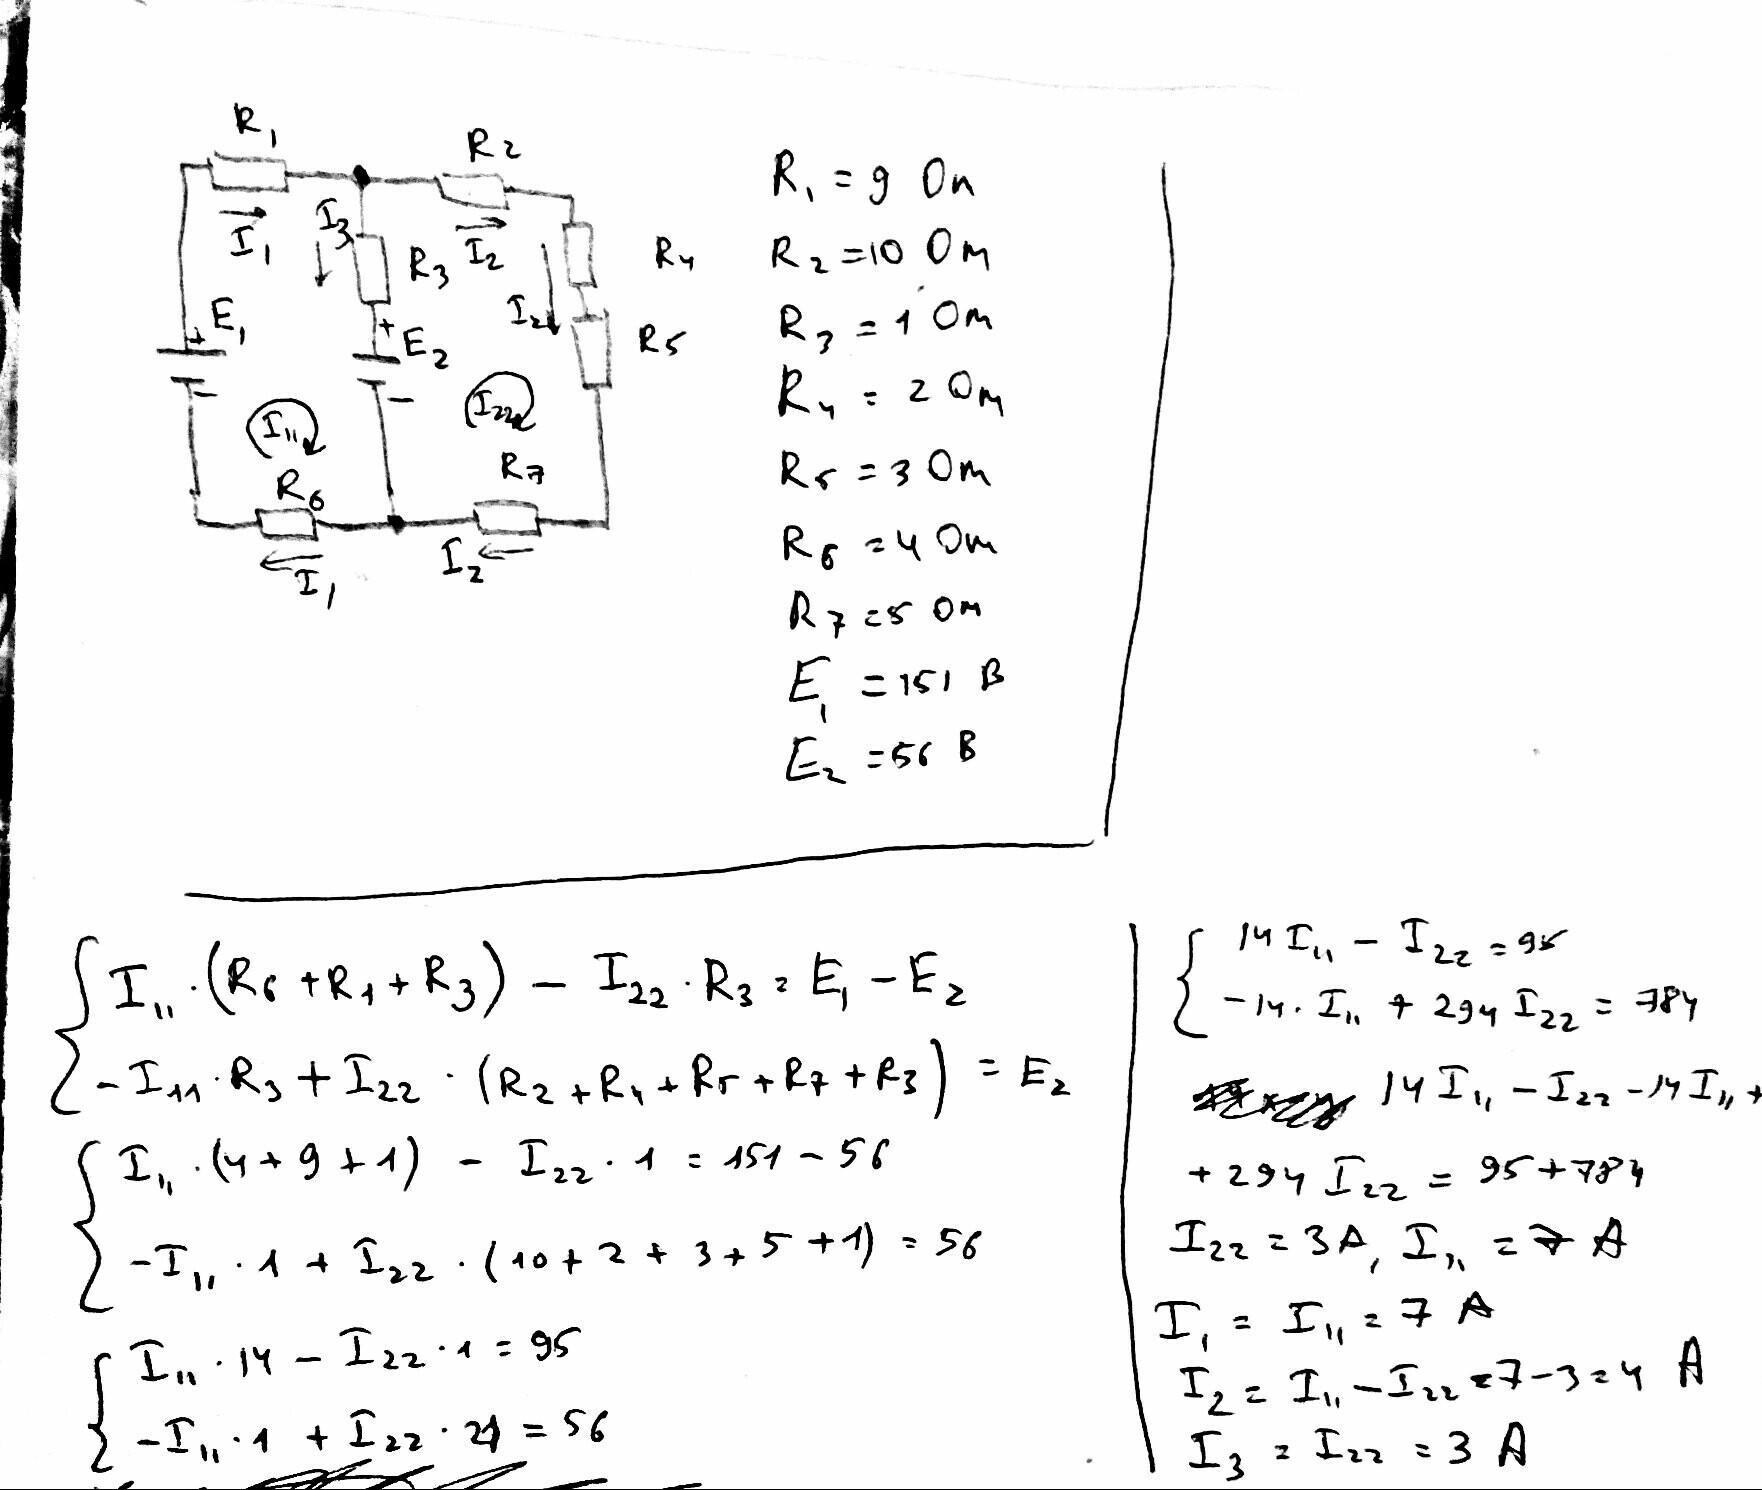 R₁
R₂
I₁
I₃
R₃
I₂
R₄
I₂
R₅
E₁
+
−
+
E₂
−
I₁₁
I₂₂
R₆
R₇
I₁
I₂
R₁ = 9 Om
R₂ = 10 Om
R₃ = 1 Om
R₄ = 2 Om
R₅ = 3 Om
R₆ = 4 Om
R₇ = 5 Om
E₁ = 151 В
E₂ = 56 В
{ I₁₁ · (R₆ + R₁ + R₃) − I₂₂ · R₃ = E₁ − E₂
− I₁₁ · R₃ + I₂₂ · (R₂ + R₄ + R₅ + R₇ + R₃) = E₂
{ I₁₁ · (4 + 9 + 1) − I₂₂ · 1 = 151 − 56
− I₁₁ · 1 + I₂₂ · (10 + 2 + 3 + 5 + 1) = 56
{ I₁₁ · 14 − I₂₂ · 1 = 95
− I₁₁ · 1 + I₂₂ · 21 = 56
{ 14 I₁₁ − I₂₂ = 95
− 14 · I₁₁ + 294 I₂₂ = 784
14 I₁₁ − I₂₂ − 14 I₁₁ +
+ 294 I₂₂ = 95 + 784
I₂₂ = 3 A, I₁₁ = 7 A
I₁ = I₁₁ = 7 A
I₂ = I₁₁ − I₂₂ = 7 − 3 = 4 A
I₃ = I₂₂ = 3 A